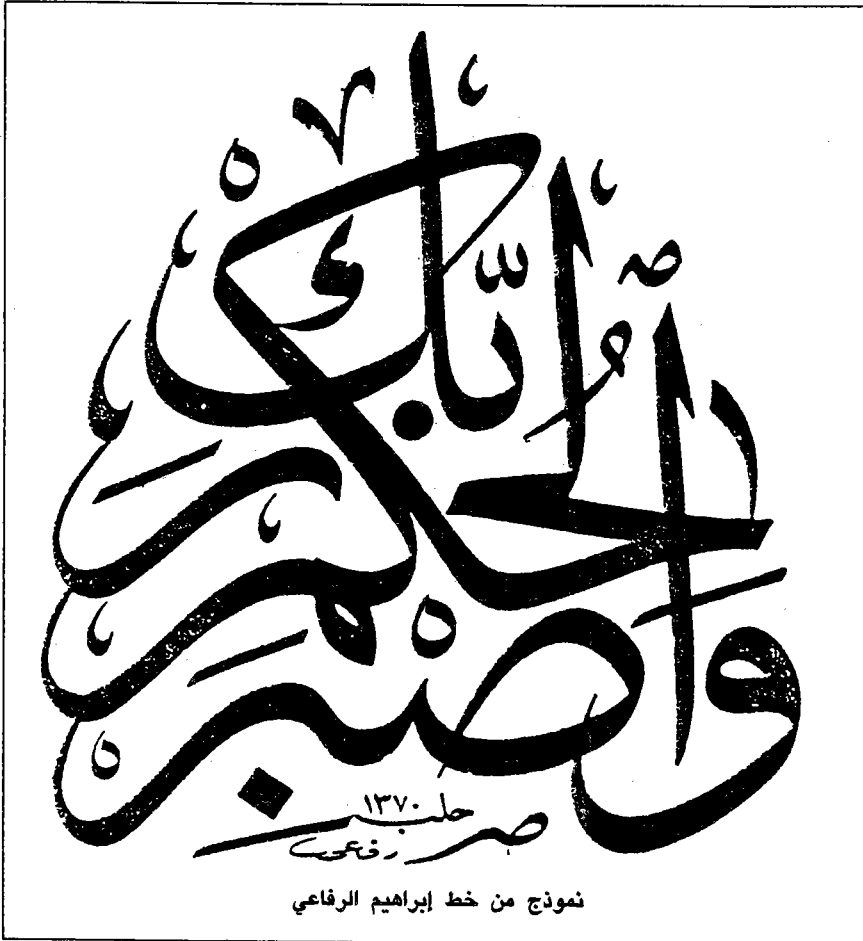 وَاصْبِرْ لِحُكْمِ رَبِّكَ
حلب ١٣٧٠
نموذج من خط إبراهيم الرفاعي